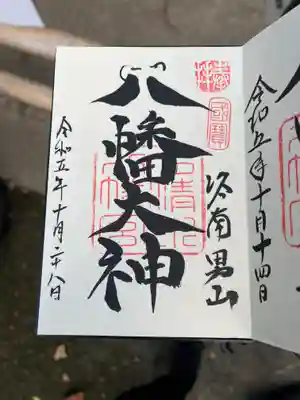 令和五年十月十四日
國寶
洛南男山
八幡大神
令和五年十月二十八日